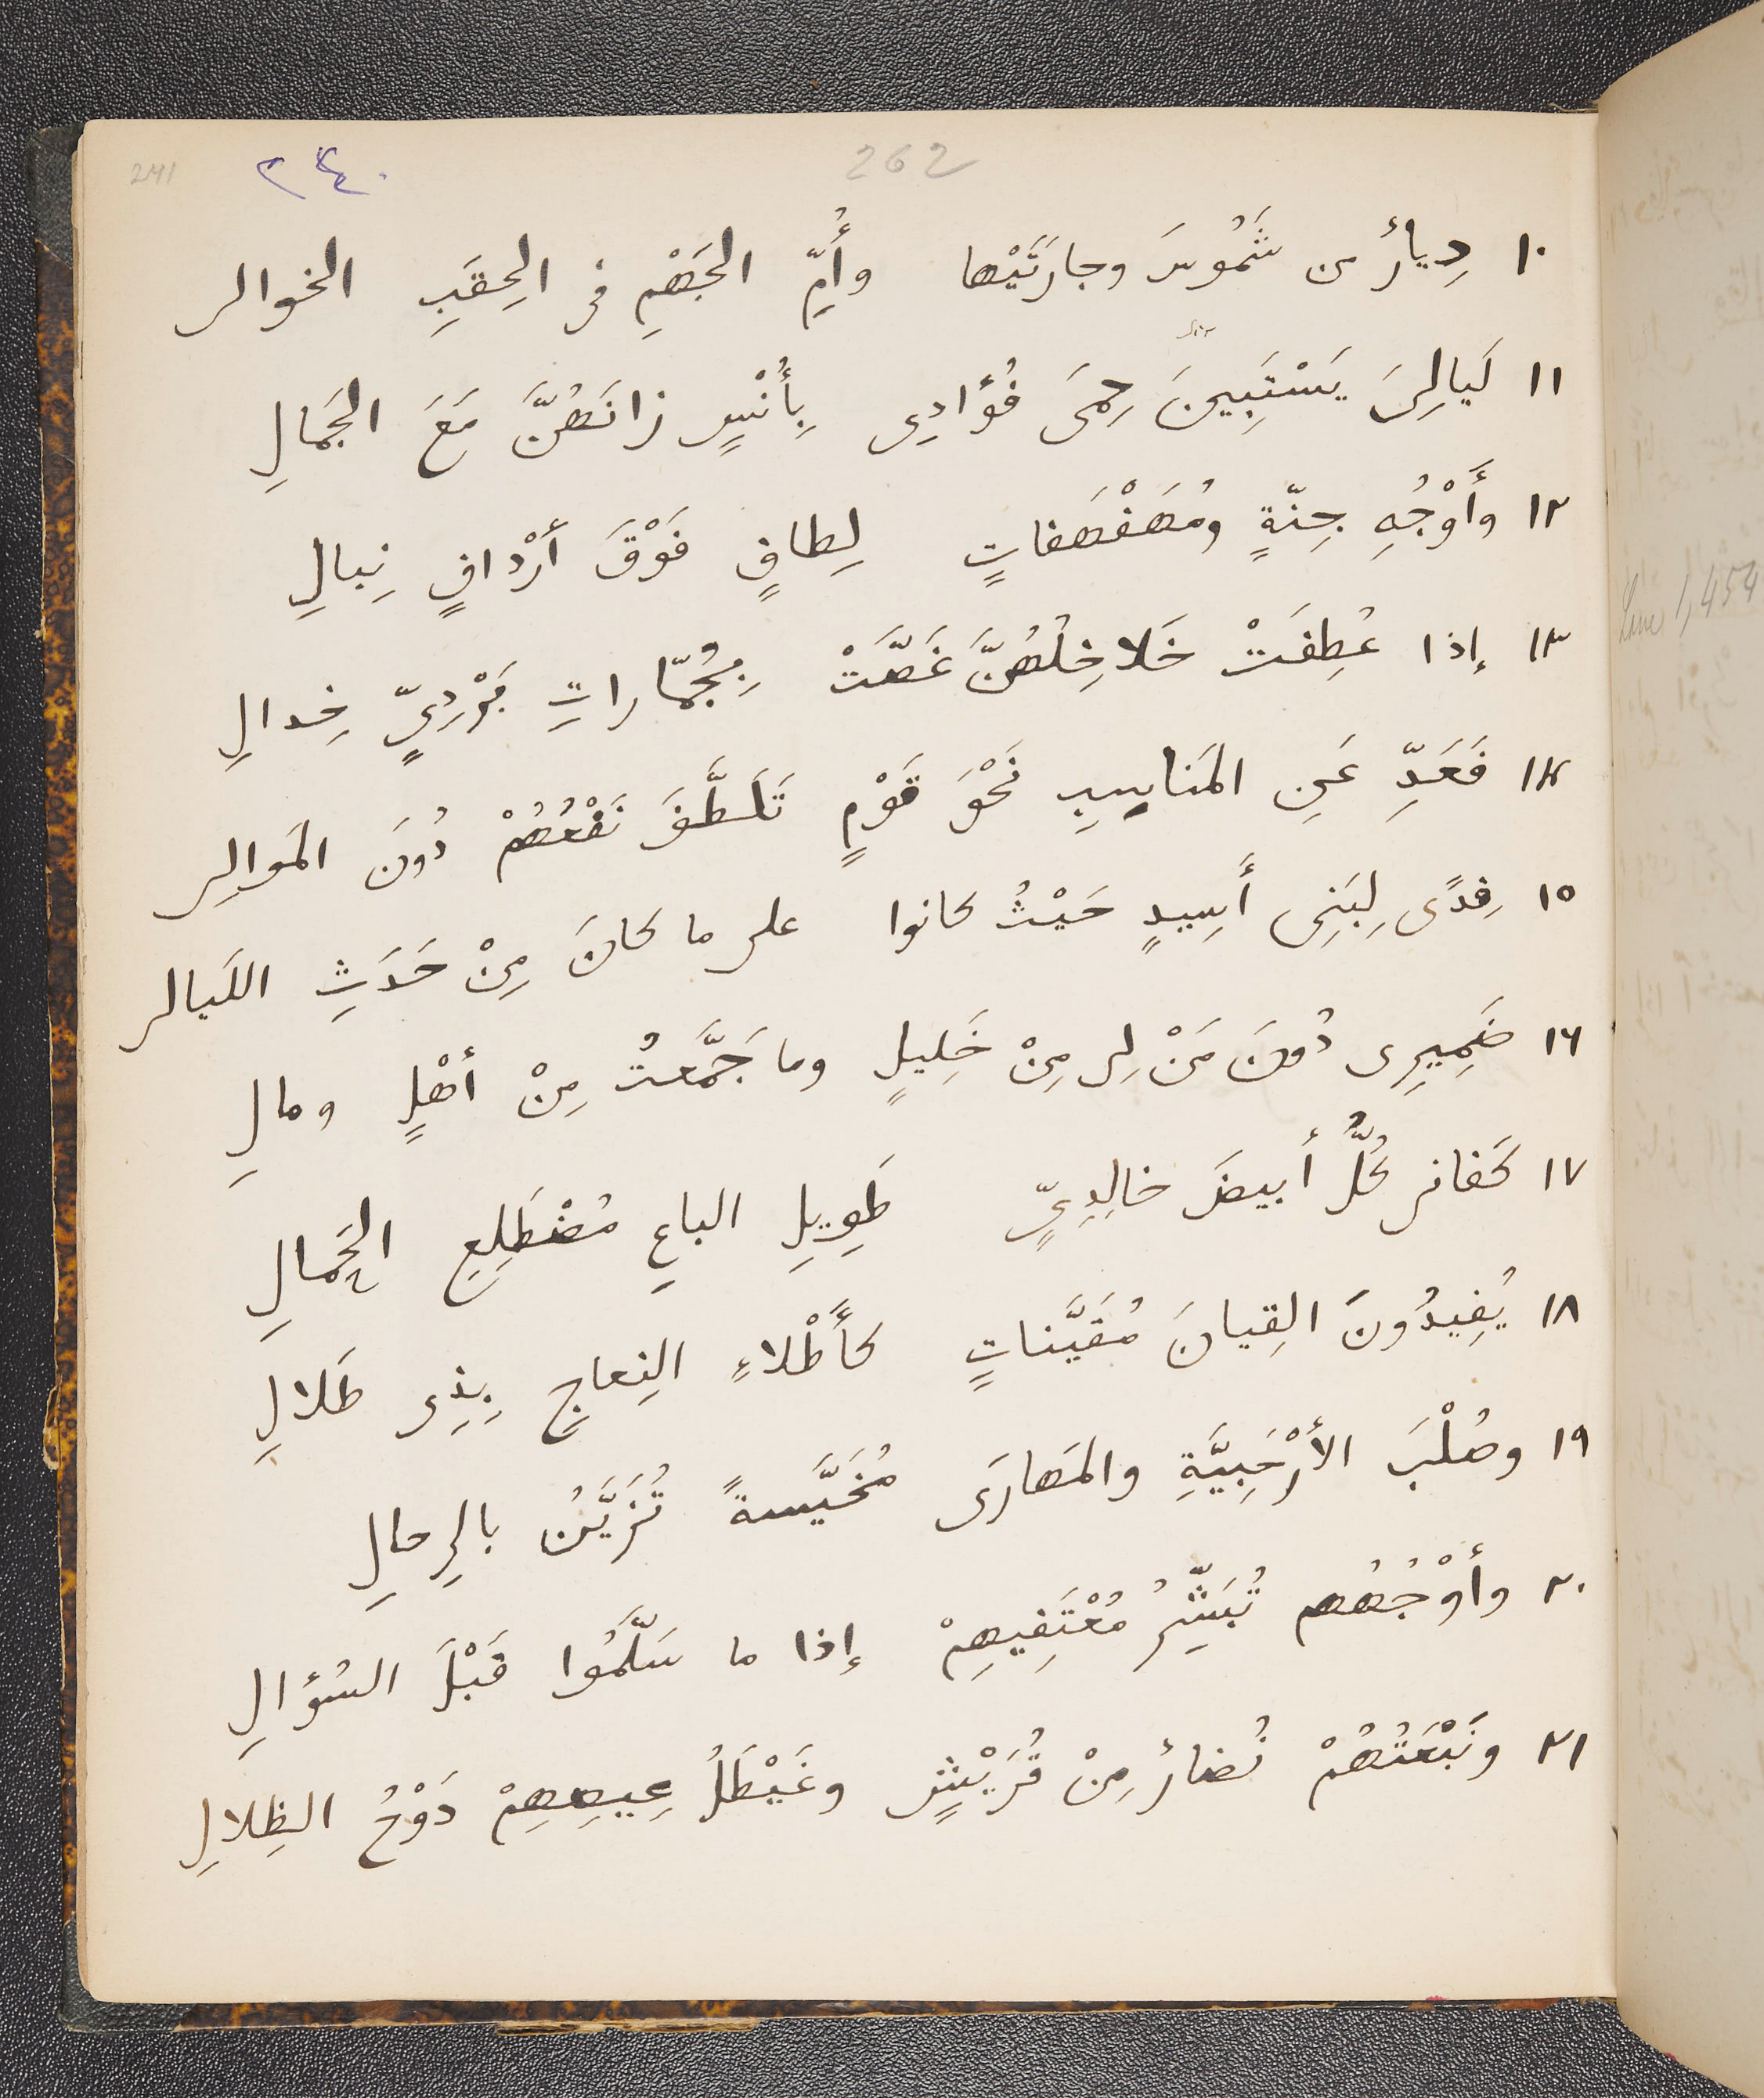 241 ٢٤٠ 262
١٠ دِيارٌ من شَمُوسَ وجارَتَيْها وأُمِّ الجَهْمِ فى الحِقَبِ الخوالى
١١ لَيالِىَ يَسْتَبِينَ حِمَى فُؤادِى بِأُنْسٍ زانَهُنَّ مَعَ الجَمالِ
١٢ وأَوْجُهِ جِنّةٍ ومُهَفْهَفاتٍ لِطافٍ فَوْقَ أرْدافٍ نِبالِ
١٣ إذا عُطِفَتْ خَلاخِلُهُنَّ غَصَّتْ بِجُمّاراتِ بَرْدِىٍّ خِدالِ
١٤ فَعَدِّ عَنِ المَناسِبِ نَحْوَ قَوْمٍ تَلَطَّفَ نَفْعُهُمْ دُونَ المَوالِى
١٥ فِدًى لِبَنِى أَسِيدٍ حَيْثُ كانوا على ما كانَ مِنْ حَدَثِ اللَيالى
١٦ ضَمِيرِى دُونَ مَنْ لِى مِنْ خَلِيلٍ وما جَمَّعتُ مِنْ أهْلٍ ومالِ
١٧ كَفانى كُلُّ أبيضَ خالِدِىٍّ طَوِيلِ الباعِ مُضْطَلِعِ الحَمالِ
١٨ يُفِيدُونَ القِيانَ مُقَيَّناتٍ كأَطْلاءِ النِعاجِ بِذِى طَلالِ
١٩ وصُلْبَ الأَرْحَبِيَّةِ والمَهارَى مُخَيَّسةً تُزَيَّنُ بالرِحالِ
٢٠ وأوْجُهُهم تُبَشِّرُ مُعْتَفِيهِمْ إذا ما سَلَّمُوا قَبْلَ السُؤالِ
٢١ ونَبْعَتُهُمْ نُضارٌ مِنْ قُرَيْشٍ وغَيْطَلُ عِيصِهِمْ دَوْحُ الظِلالِ
Lane 1,454